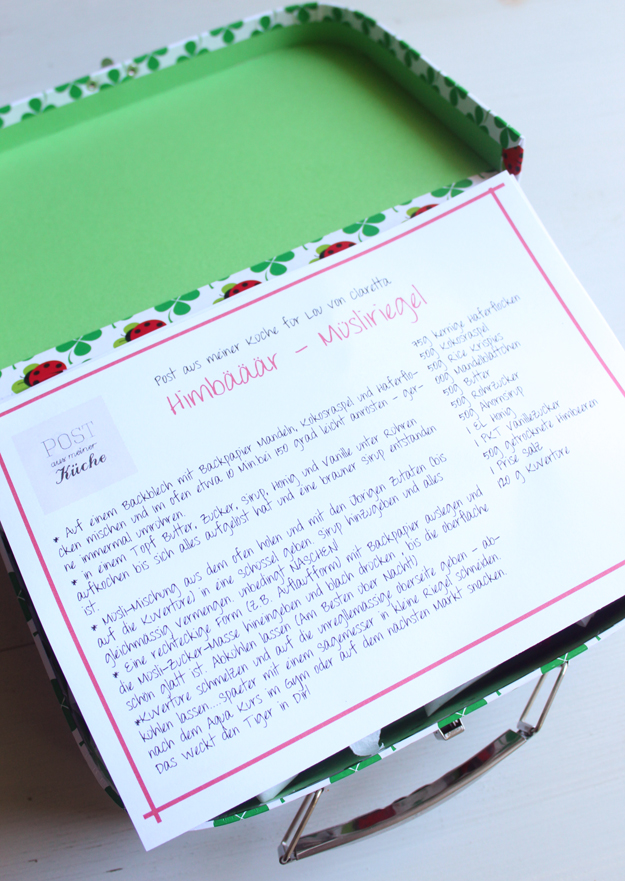 Post aus meiner Küche für Lou von Claretta
Himbääär - Müsliriegel
POST
aus meiner
Küche
* Auf einem Backblech mit Backpapier Mandeln, Kokosraspel und Haferflo-
cken mischen und im Ofen etwa 10 Min bei 150 grad leicht anrösten - ger-
ne immermal umrühren.
* in einem Topf Butter, Zucker, Sirup, Honig und Vanille unter Rühren
aufkochen bis sich alles aufgelöst hat und eine brauner Sirup entstanden
ist.
* Müsli-Mischung aus dem Ofen holen und mit den übrigen Zutaten (bis
auf die Kuvertüre) in eine Schüssel geben. Sirup hinzugeben und alles
gleichmässig vermengen. unbedingt NASCHEN!
* Eine rechteckige Form (z.B. Auflaufform) mit Backpapier auslegen und
die Müsli-Zucker-Masse hineingeben und blach drücken, bis die Oberfläche
schön glatt ist. Abkühlen lassen (Am Besten über Nacht)
*Kuvertüre schmelzen und auf die unregelmässige Oberseite geben - ab-
kühlen lassen....Spaeter mit einem Sägemesser in kleine Riegel schneiden.
nach dem Aqua Kurs im Gym oder auf dem nächsten Markt snacken
Das weckt den Tiger in Dir!
kernige Haferflocken
50g Kokosraspel
50g Rice Krispies
Mandelblättchen
50g Butter
50g Rohrzucker
50g Ahornsirup
1 EL Honig
1 PKT Vanillezucker
50g getrocknete Himbeeren
1 Prise Salz
g Kuvertüre